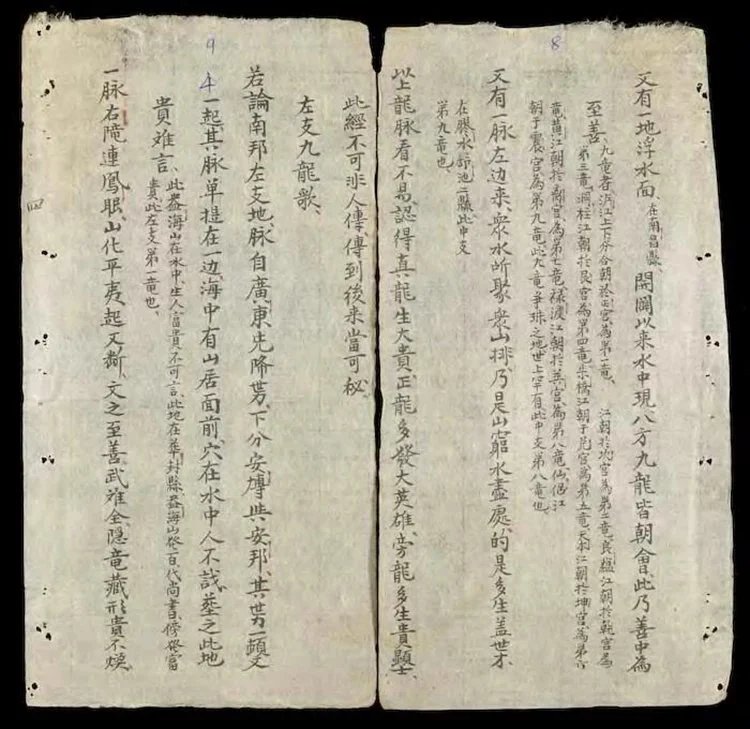 8
又有一地浮水面在南昌縣開闢以来水中現八方九龍皆朝會此乃善中為
至善
九竜者泸江上下分合朝於正宮為第一竜 江朝於坎宮為第二竜良緼江朝於乾宮為
第三竜洞柱江朝於艮宮為第四竜朱橋江朝于兑宮為第五竜天初江朝於坤宮為第六
竜黄江朝於离宮為第七竜禄渡江朝於巽宮為第八竜仙侣江
朝于震宮為第九竜此九竜争珠之地世上罕有此中支第八竜也
又有一脉左边来衆水所聚衆山排乃是山窮水盡處的是多生盖世才
在膠水諒池二縣此中支
第九竜也
以上龍脉看不易認得真龍生大貴正龍多發大英雄旁龍多生貴顯士
9
此經不可非人傳傳到後来當可秘
左支九龍歌
若論南邦左支地脉自廣東先降势下分安博與安邦其势一頓又
一起其脉单提在一边海中有山居面前穴在水中人不識葬之此地
貴难言
此益海山在水中生人富貴不可言此地在華封縣益海山發百代尚書傍發富
貴此左支第一竜也
一脉右陇連鳳眠山化平夷起又断文之至善武难全隐竜藏形貴不煥